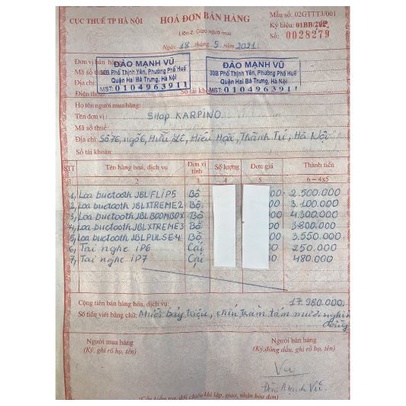 CỤC THUẾ TP HÀ NỘI
HOÁ ĐƠN BÁN HÀNG
Mẫu số: 02GTTT3/001
Liên 2: Giao người mua
Ký hiệu: 01BB/
Số: 0028279
Ngày: 18 tháng 5 năm 2021
Đơn vị bán hàng
ĐÀO MẠNH VŨ
30B Phố Thịnh Yên, Phường Phố Huế
Quận Hai Bà Trưng, Hà Nội
MST: 0104963911
ĐÀO MẠNH VŨ
30B Phố Thịnh Yên, Phường Phố Huế
Quận Hai Bà Trưng, Hà Nội
MST: 0104963911
Địa chỉ
Điện thoại
Họ tên người mua hàng:
Shop KARPINO
Mã số thuế:
Địa chỉ: Số 76, ngõ 6, Thanh Trì, Hà Nội
Số tài khoản
STT Tên hàng hóa, dịch vụ Đơn vị tính Số lượng Đơn giá Thành tiền
2 3 5 6=4x5
1, Loa buctooth JBLFLIP5 Bộ 2.500.000
2, Loa buctooth JBLXTREME2 Bộ 3.100.000
3, Loa buctooth JBLBOOMBOX Bộ 4.300.000
4, Loa buctooth JBLXTREME3 Bộ 3.800.000
5, Loa buctooth JBLPULSE4 Bộ 3.550.000
6, Tai nghe IP6 Cái 250.000
7, Tai nghe IP7 Cái 480.000
Cộng tiền bán hàng hóa, dịch vụ 17.980.000
Số tiền viết bằng chữ: Mười bảy triệu, chín trăm tám mươi nghìn đồng
Người mua hàng
(Ký, ghi rõ họ, tên)
Người bán hàng
(Ký, đóng dấu, ghi rõ họ, tên)
Vũ
Đào Mạnh Vũ
(Cần kiểm tra, đối chiếu khi lập, giao, nhận hóa đơn)